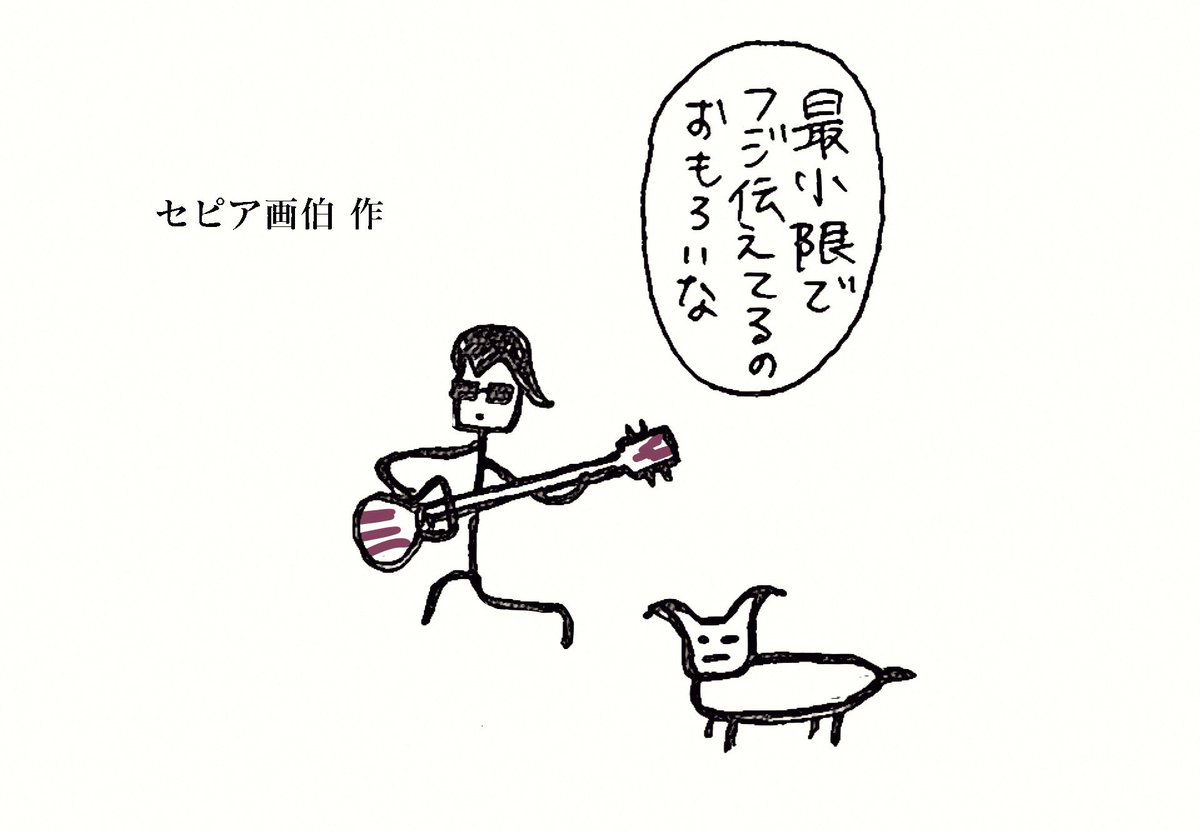 セピア画伯 作
最小限で
フジ伝えてるの
おもろいな